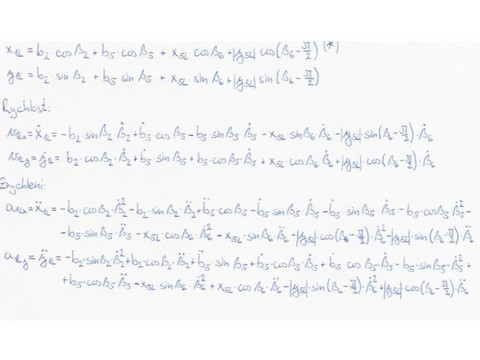 x₁L = b₂·cosβ₂ + b₅·cosβ₅ + x₅L·cosβ₆ + |y₅L|·cos(β₆ - π/2) (*)
y₁L = b₂·sinβ₂ + b₅·sinβ₅ + x₅L·sinβ₆ + |y₅L|·sin(β₆ - π/2)
Rychlost:
v₁Lx = ẋ₁L = -b₂·sinβ₂·β̇₂ + ḃ₅·cosβ₅ - b₅·sinβ₅·β̇₅ - x₅L·sinβ₆·β̇₆ - |y₅L|·sin(β₆ - π/2)·β̇₆
v₁Ly = ẏ₁L = b₂·cosβ₂·β̇₂ + ḃ₅·sinβ₅ + b₅·cosβ₅·β̇₅ + x₅L·cosβ₆·β̇₆ + |y₅L|·cos(β₆ - π/2)·β̇₆
Zrychlení:
a₁Lx = ẍ₁L = -b₂·cosβ₂·β̇₂² - b₂·sinβ₂·β̈₂ + b̈₅·cosβ₅ - ḃ₅·sinβ₅·β̇₅ - ḃ₅·sinβ₅·β̇₅ - b₅·cosβ₅·β̇₅² -
- b₅·sinβ₅·β̈₅ - x₅L·cosβ₆·β̇₆² - x₅L·sinβ₆·β̈₆ - |y₅L|·cos(β₆ - π/2)·β̇₆² - |y₅L|·sin(β₆ - π/2)·β̈₆
a₁Ly = ÿ₁L = -b₂·sinβ₂·β̇₂² + b₂·cosβ₂·β̈₂ + b̈₅·sinβ₅ + ḃ₅·cosβ₅·β̇₅ + ḃ₅·cosβ₅·β̇₅ - b₅·sinβ₅·β̇₅² +
+ b₅·cosβ₅·β̈₅ - x₅L·sinβ₆·β̇₆² + x₅L·cosβ₆·β̈₆ - |y₅L|·sin(β₆ - π/2)·β̇₆² + |y₅L|·cos(β₆ - π/2)·β̈₆